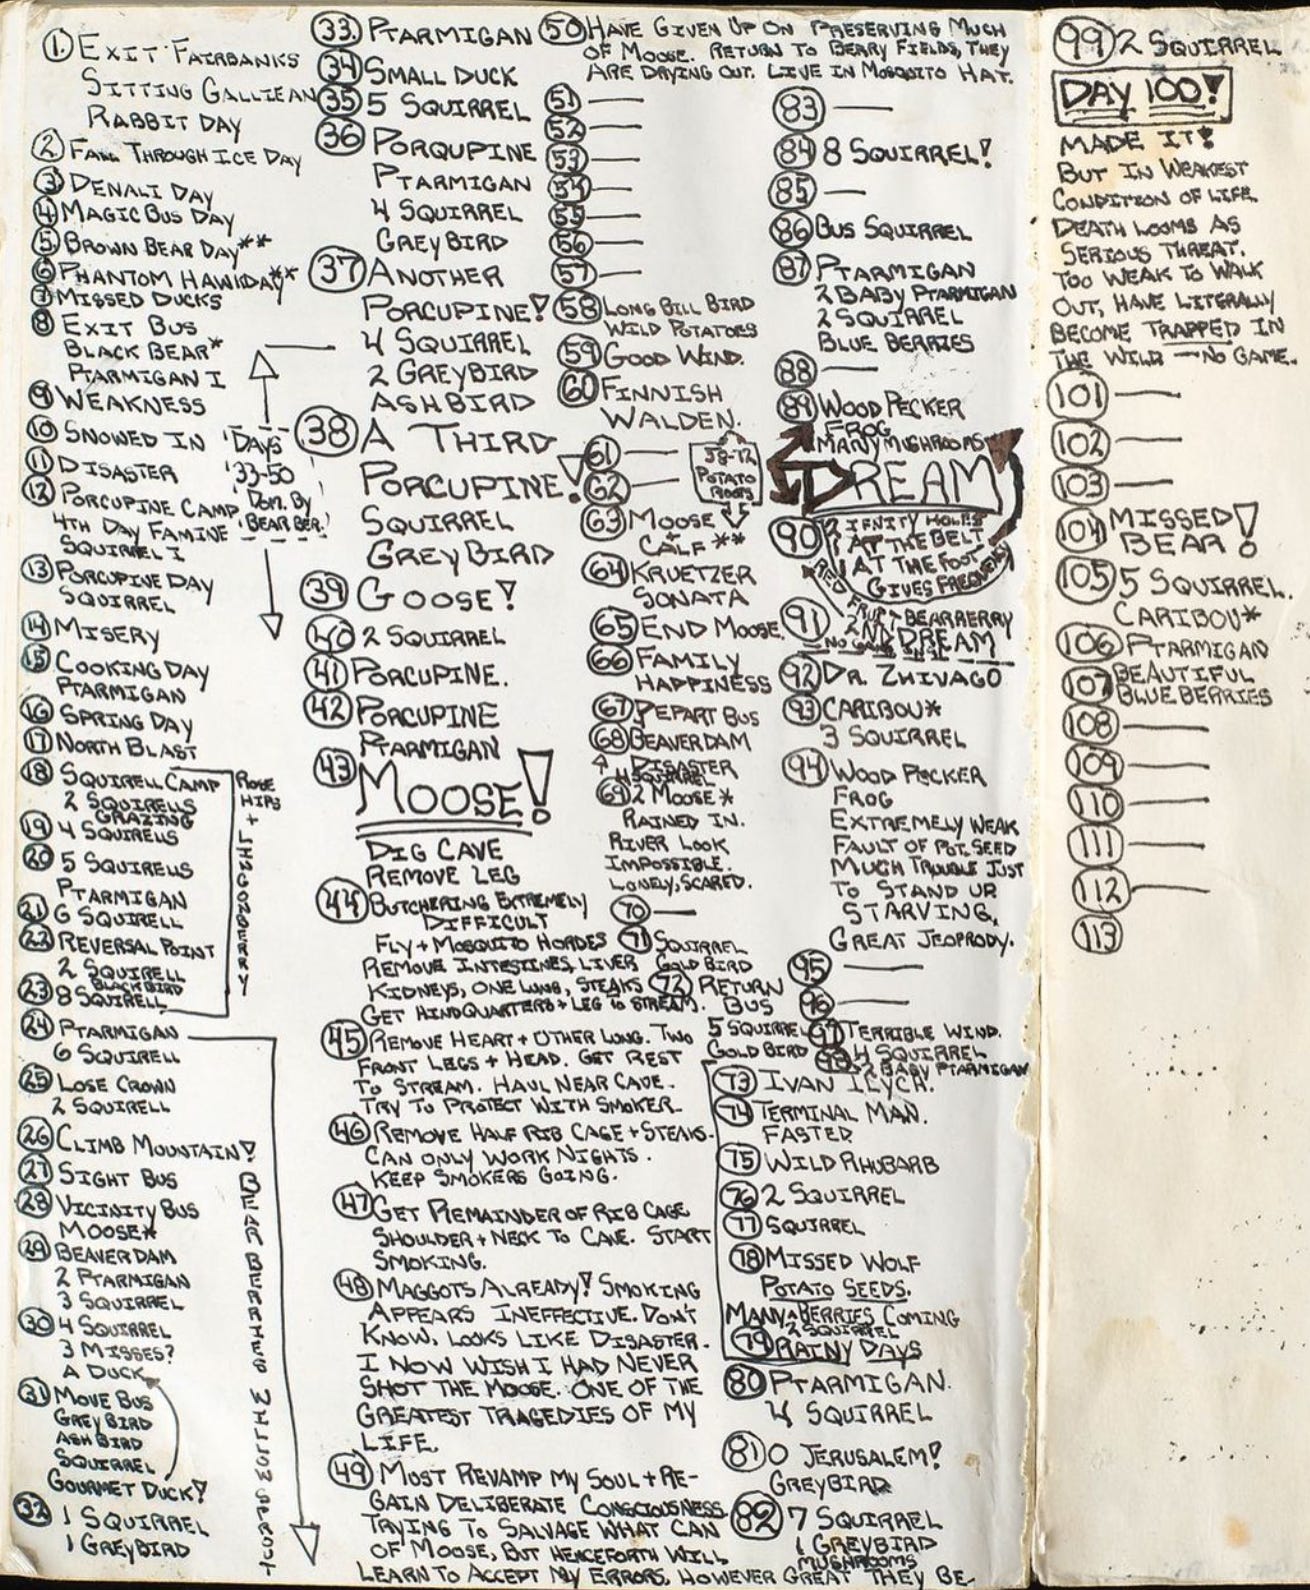 1. EXIT FAIRBANKS
SITTING GALLIEAN
RABBIT DAY
2 FALL THROUGH ICE DAY
3 DENALI DAY
4 MAGIC BUS DAY
5 BROWN BEAR DAY**
6 PHANTOM HAWKDAY**
7 MISSED DUCKS
8 EXIT BUS
BLACK BEAR*
PTARMIGAN I
9 WEAKNESS
10 SNOWED IN
11 DISASTER
12 PORCUPINE CAMP
4TH DAY FAMINE
SQUIRREL I
13 PORCUPINE DAY
SQUIRREL
14 MISERY
15 COOKING DAY
PTARMIGAN
16 SPRING DAY
17 NORTH BLAST
18 SQUIRELL CAMP
2 SQUIRELLS
GRAZING
19 4 SQUIRELLS
20 5 SQUIRELLS
PTARMIGAN
21 6 SQUIRELL
22 REVERSAL POINT
2 SQUIRELL
BLACKBIRD
23 8 SQUIRELL
ROSE
HIPS
+
LINGONBERRY
24 PTARMIGAN
6 SQUIRELL
25 LOSE CROWN
2 SQUIRELL
26 CLIMB MOUNTAIN!
27 SIGHT BUS
28 VICINITY BUS
MOOSE*
29 BEAVER DAM
2 PTARMIGAN
3 SQUIRREL
30 4 SQUIRREL
3 MISSES?
A DUCK
31 MOVE BUS
GREY BIRD
ASH BIRD
SQUIRREL
GOURMET DUCK!
32 1 SQUIRREL
1 GREYBIRD
BEAR BERRIES WILLOW SPROUT
DAYS
33-50
DOM. BY
BEAR BER.
33. PTARMIGAN
34 SMALL DUCK
35 5 SQUIRREL
36 PORQUPINE
PTARMIGAN
4 SQUIRREL
GREYBIRD
37 ANOTHER
PORCUPINE!
4 SQUIRREL
2 GREYBIRD
ASHBIRD
38 A THIRD
PORCUPINE!
SQUIRREL
GREYBIRD
39 GOOSE!
40 2 SQUIRREL
41 PORCUPINE.
42 PORCUPINE
PTARMIGAN
43 MOOSE!
DIG CAVE
REMOVE LEG
44 BUTCHERING EXTREMELY
DIFFICULT
FLY + MOSQUITO HORDES
REMOVE INTESTINES, LIVER
KIDNEYS, ONE LUNG, STEAKS
GET HINDQUARTERS + LEG TO STREAM.
45 REMOVE HEART + OTHER LUNG. TWO
FRONT LEGS + HEAD. GET REST
TO STREAM. HAUL NEAR CAVE.
TRY TO PROTECT WITH SMOKER.
46 REMOVE HALF RIB CAGE + STEAKS.
CAN ONLY WORK NIGHTS.
KEEP SMOKERS GOING.
47 GET REMAINDER OF RIB CAGE
SHOULDER + NECK TO CAVE. START
SMOKING.
48 MAGGOTS ALREADY! SMOKING
APPEARS INEFFECTIVE. DON'T
KNOW, LOOKS LIKE DISASTER.
I NOW WISH I HAD NEVER
SHOT THE MOOSE. ONE OF THE
GREATEST TRAGEDIES OF MY
LIFE.
49 MUST REVAMP MY SOUL + RE-
GAIN DELIBERATE CONSCIOUSNESS.
TRYING TO SALVAGE WHAT CAN
OF MOOSE, BUT HENCEFORTH WILL
LEARN TO ACCEPT MY ERRORS, HOWEVER GREAT THEY BE.
50 HAVE GIVEN UP ON PRESERVING MUCH
OF MOOSE. RETURN TO BERRY FIELDS, THEY
ARE DRYING OUT. LIVE IN MOSQUITO HAT.
51 —
52 —
53 —
54 —
55 —
56 —
57 —
58 LONG BILL BIRD
WILD POTATOES
59 GOOD WIND.
60 FINNISH
WALDEN.
61 —
62 —
58-72
POTATO
ROOTS
63 MOOSE
+
CALF **
64 KRUETZER
SONATA
65 END MOOSE.
66 FAMILY
HAPPINESS
67 DEPART BUS
68 BEAVERDAM
DISASTER
4 SQUIRREL
69 2 MOOSE*
RAINED IN.
RIVER LOOK
IMPOSSIBLE.
LONELY, SCARED.
70 —
71 SQUIRREL
GOLD BIRD
72 RETURN
BUS
5 SQUIRREL
GOLD BIRD
73 IVAN ILYCH.
74 TERMINAL MAN.
FASTED
75 WILD RHUBARB
76 2 SQUIRREL
77 SQUIRREL
78 MISSED WOLF
POTATO SEEDS.
MANY BERRIES COMING
2 SQUIRREL
79 RAINY DAYS
80 PTARMIGAN.
4 SQUIRREL
81 O JERUSALEM!
GREYBIRD
82 7 SQUIRREL
1 GREYBIRD
MUSHROOMS
83 —
84 8 SQUIRREL!
85 —
86 BUS SQUIRREL
87 PTARMIGAN
2 BABY PTARMIGAN
2 SQUIRREL
BLUE BERRIES
88 —
89 WOOD PECKER
FROG
MANY MUSHROOMS
DREAM
90 2 IFNITY HOLES
AT THE BELT
AT THE FOOT
GIVES FREQUENCY
RED
FRUIT BEARBERRY
91 2ND DREAM
92 DR. ZHIVAGO
93 CARIBOU*
3 SQUIRREL
94 WOOD PECKER
FROG
EXTREMELY WEAK
FAULT OF POT. SEED
MUCH TROUBLE JUST
TO STAND UP
STARVING.
GREAT JEOPRODY.
95 —
96 —
97 TERRIBLE WIND.
98 4 SQUIRREL
2 BABY PTARMIGAN
99 2 SQUIRREL
DAY 100!
MADE IT!
BUT IN WEAKEST
CONDITION OF LIFE
DEATH LOOMS AS
SERIOUS THREAT.
TOO WEAK TO WALK
OUT, HAVE LITERALLY
BECOME TRAPPED IN
THE WILD — NO GAME.
101 —
102 —
103 —
104 MISSED
BEAR!
105 5 SQUIRREL.
CARIBOU*
106 PTARMIGAN
107 BEAUTIFUL
BLUE BERRIES
108 —
109 —
110 —
111 —
112 —
113